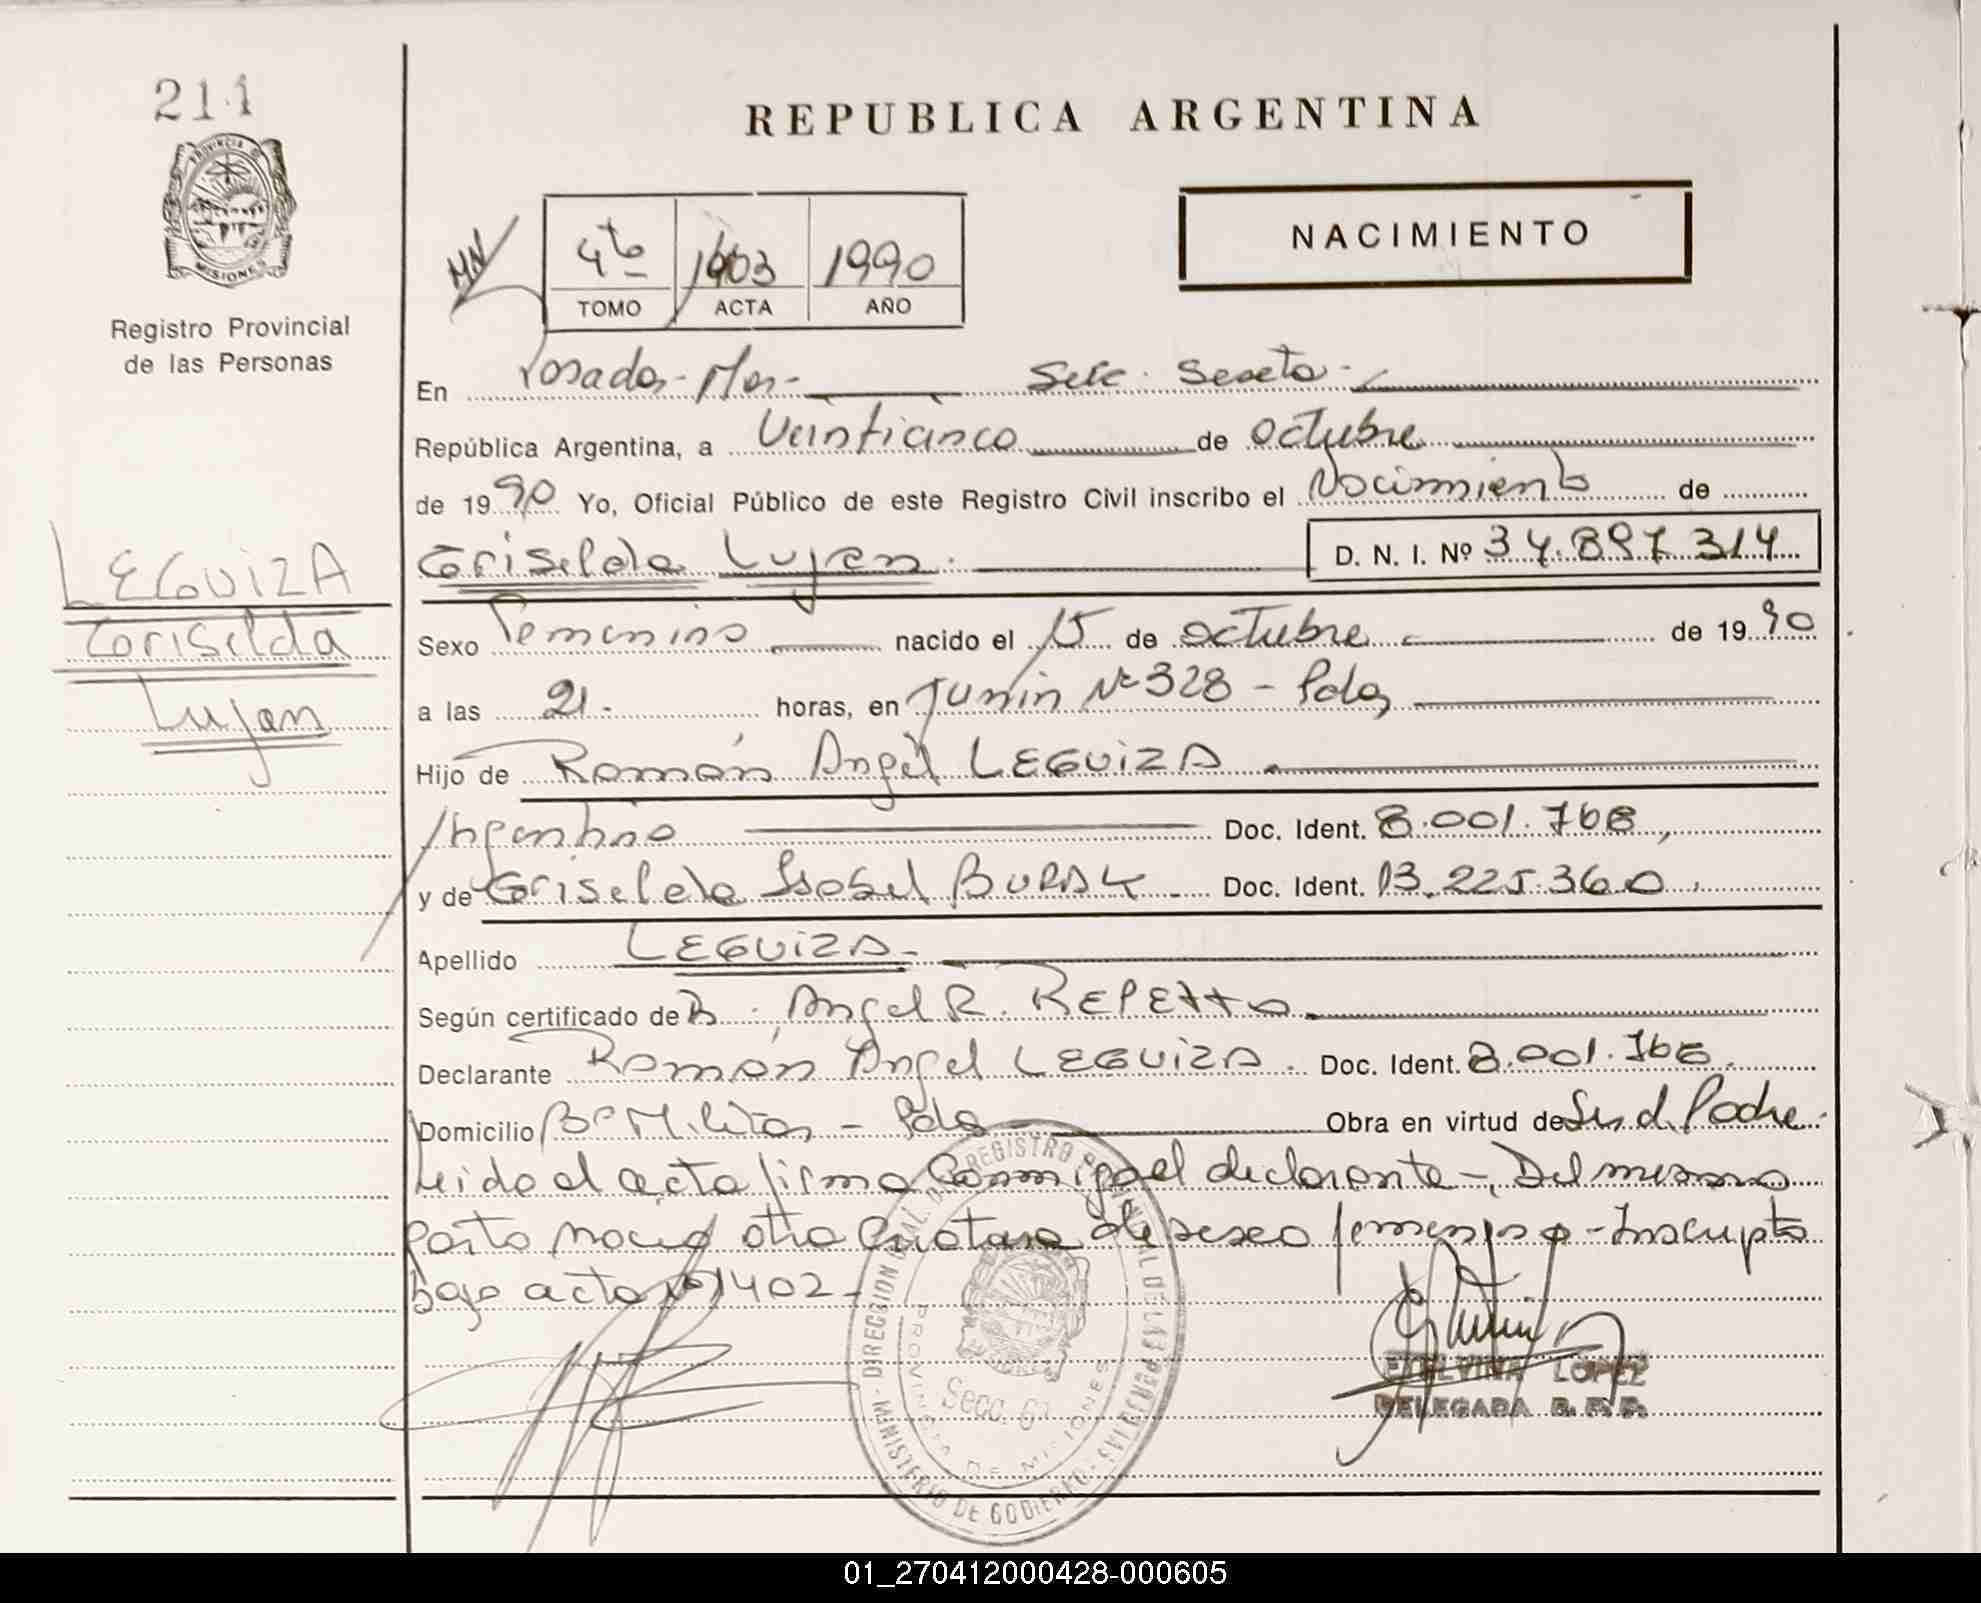 211
PROVINCIA DE
MISIONES
Registro Provincial
de las Personas
REPUBLICA ARGENTINA
NACIMIENTO
4to 1403 1990
TOMO ACTA AÑO
En Posadas - Mnes - Secc. Sexta -
República Argentina, a Veinticinco de octubre
de 1990 Yo, Oficial Público de este Registro Civil inscribo el Nacimiento de
Griselda Lujan. D. N. I. Nº 34.897.314
LEGUIZA
Griselda
Lujan
Sexo Femenino nacido el 15 de octubre de 1990
a las 21. horas, en Junin Nº 328 - Pdas
Hijo de Román Angel LEGUIZA
Argentino Doc. Ident. 8.001.768,
y de Griselda Isabel BURAK Doc. Ident. 13.225.360.
Apellido LEGUIZA.
Según certificado de Angel R. REPETTO
Declarante Román Angel LEGUIZA. Doc. Ident. 8.001.768.
Domicilio Bº Militar - Pdas Obra en virtud de Ser el Padre.
Leida el acta firma conmigo el declarante -. Del mismo
parto nació otra criatura de sexo femenino - Inscripta
bajo acta nº 1402 -
MINISTERIO DE GOBIERNO - DIRECCION GRAL. DEL REGISTRO PROVINCIAL DE LAS PERSONAS
PROVINCIA DE MISIONES
Secc. 6ª
ETELVINA LOPEZ
DELEGADA R. P. P.
01_270412000428-000605